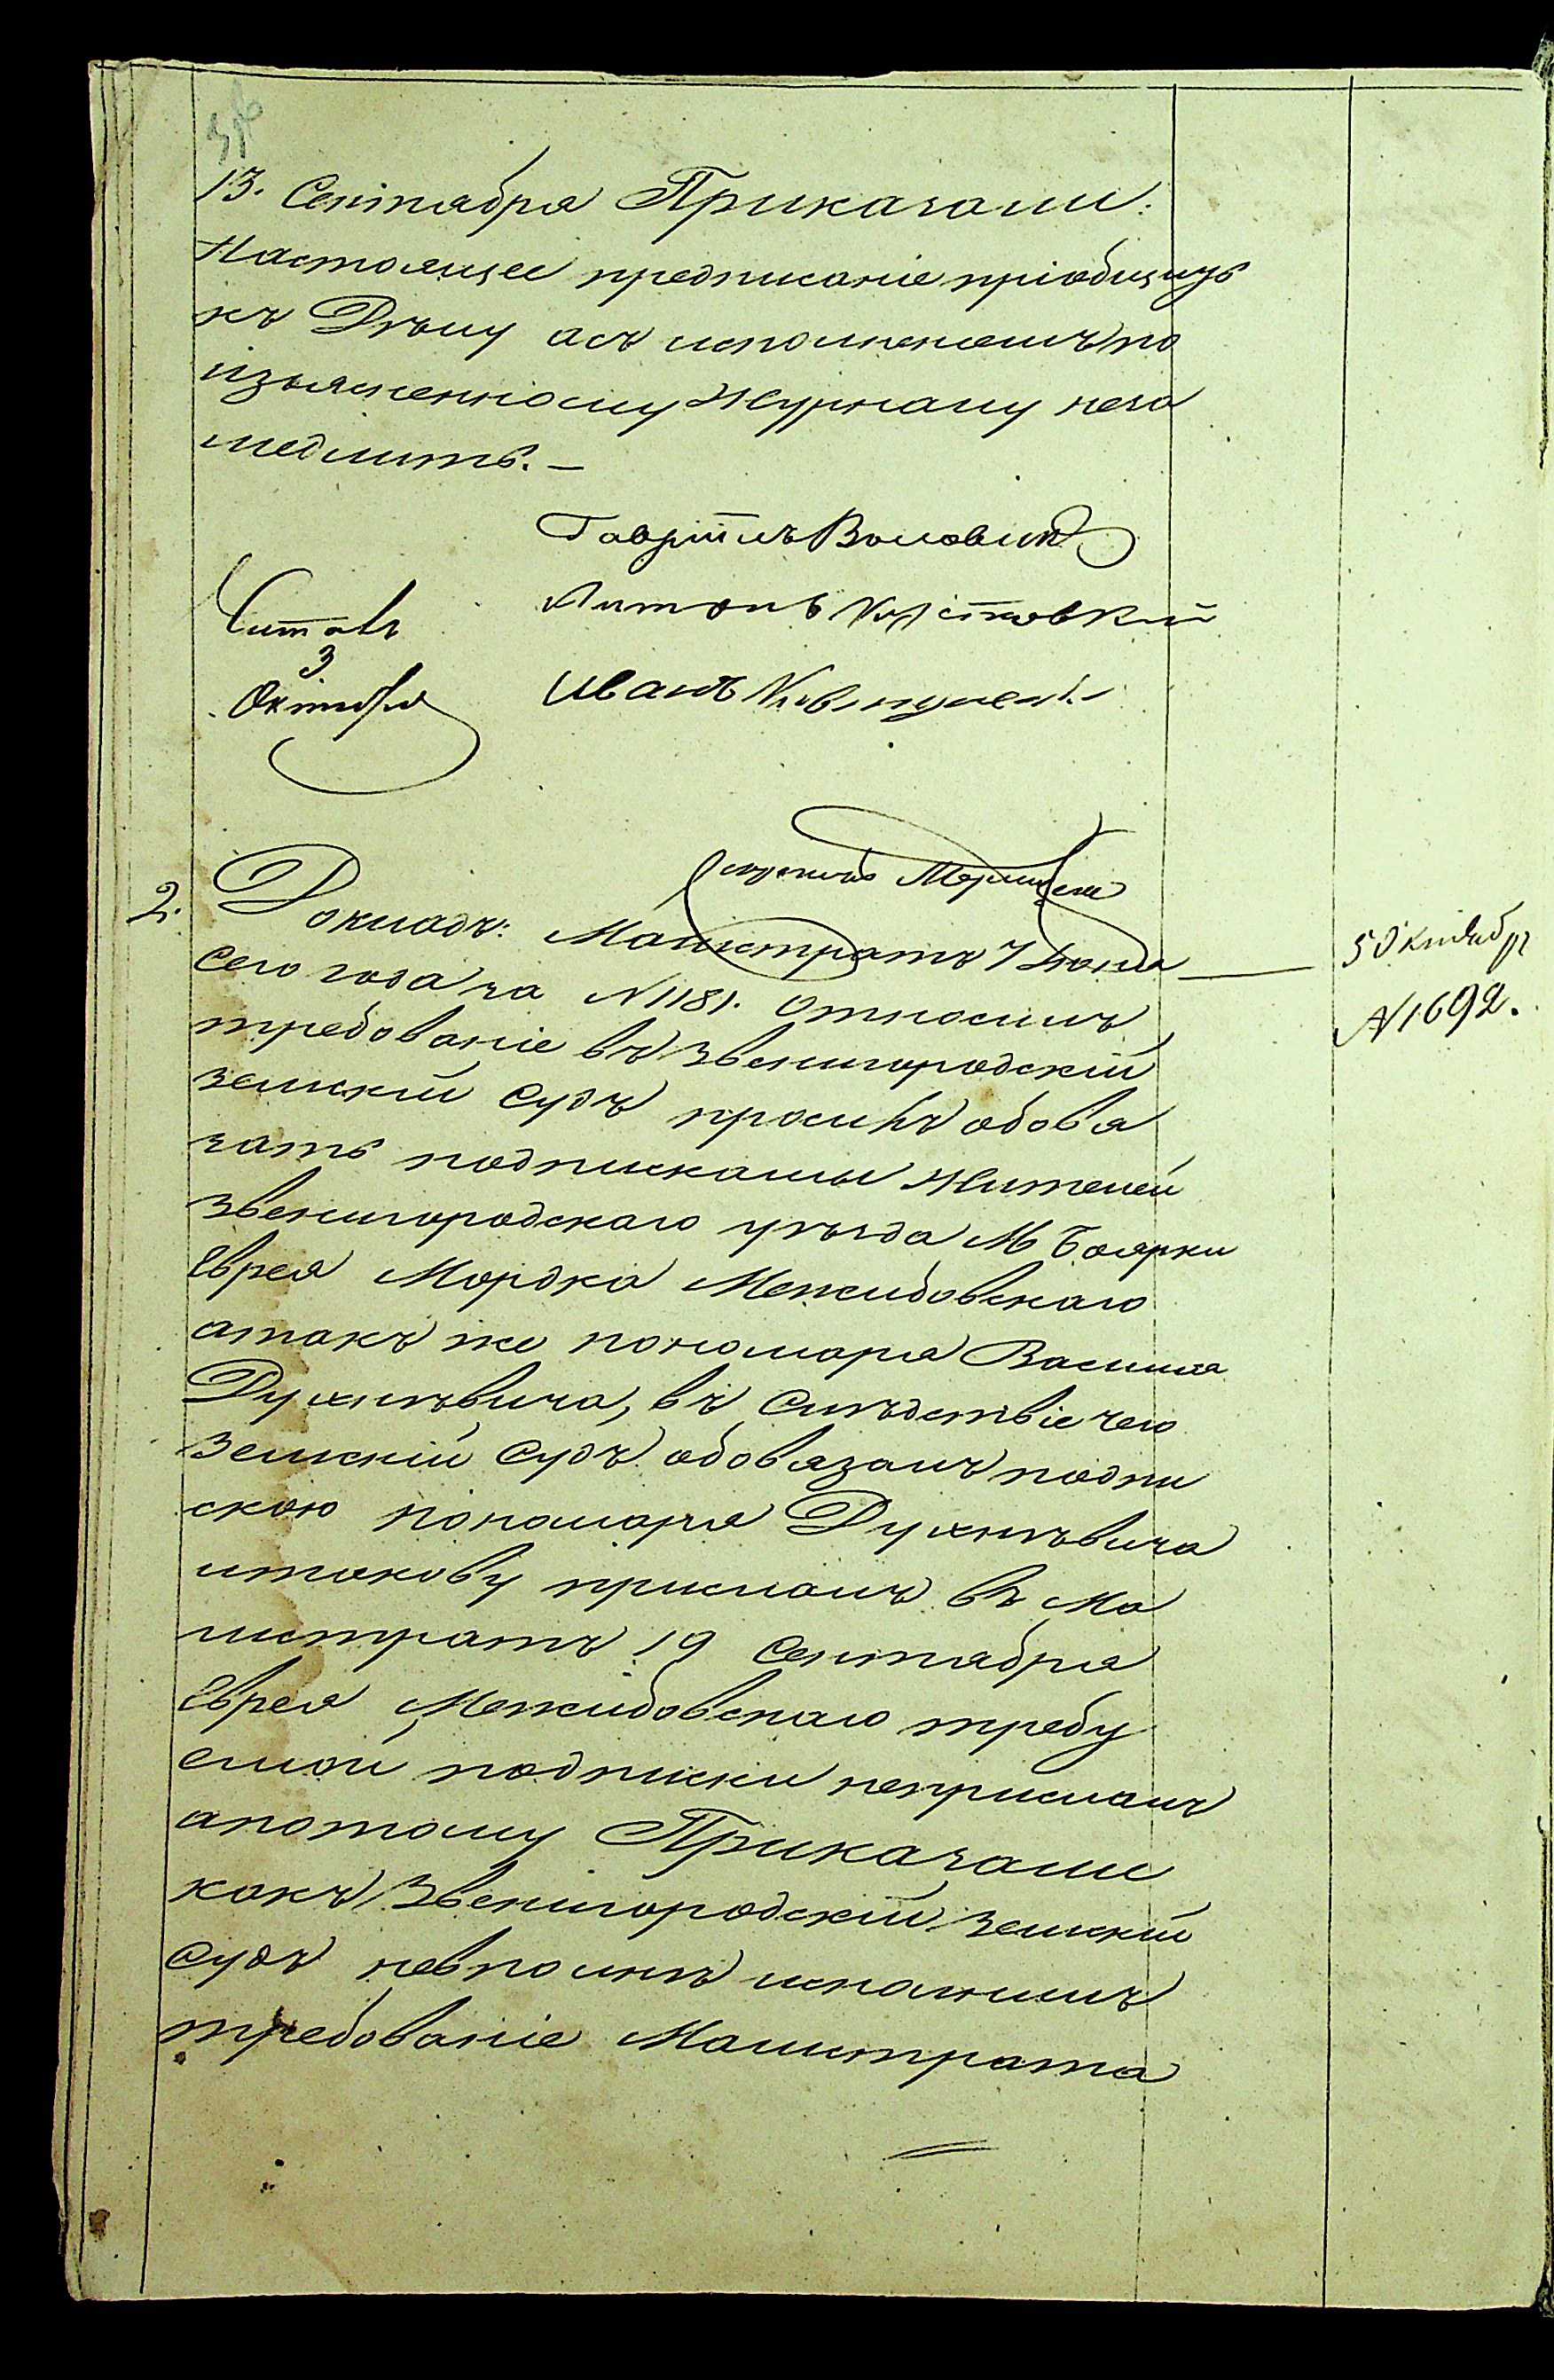 13. Сентября Приказали:
Настоящее предписаніе пріобщить
къ Дѣлу а съ исполненіемъ по
изъясненному Журналу неза
медлить. —
Гавріилъ Воловик
Антонъ
Читалъ
3
Октября
Иванъ
2. Докладъ: Магистратъ 7 Іюня
сего года за N 1181. относилъ
требованіе въ Звенигородскій
земскій Судъ просилъ обовя
зать подписками Жителей
Звенигородскаго уѣзда М Боярки
Еврея Мордка Межибовскаго
атакъ же пономаря Василия
Духнѣвича, въ Слѣдствіе чего
Земскій Судъ обовязалъ подпи
скою пономаря Духнѣвича
итакову прислалъ въ Ма
гистратъ 19 Сентября
Еврея Межибовскаго требу
емой подписки неприслалъ
апотому Приказали
какъ Звенигородскій земскій
Судъ невполнѣ исполнилъ
требованіе Магистрата
5 Октября
N 1692.